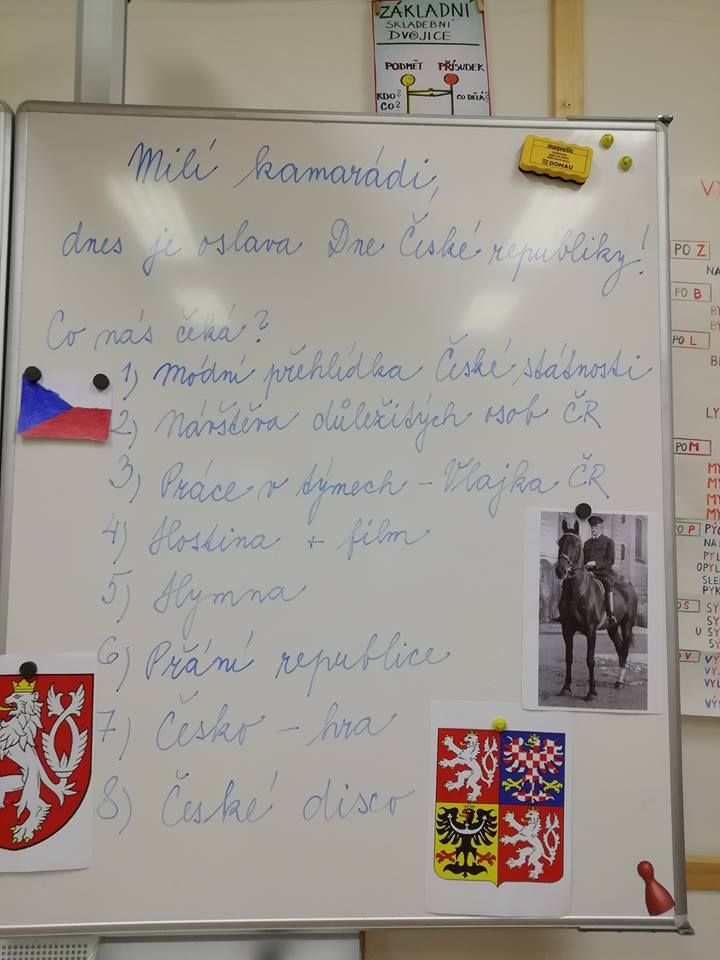 ZÁKLADNÍ
SKLADEBNÍ
DVOJICE
PODMĚT PŘÍSUDEK
KDO?
CO?
CO DĚLÁ?
magnetic
DONAU
Milí kamarádi,
dnes je oslava Dne České republiky!
Co nás čeká?
1) Módní přehlídka České státnosti
2) Návštěva důležitých osob ČR
3) Práce v týmech - Vlajka ČR
4) Hostina + film
5) Hymna
6) Přání republice
7) Česko - hra
8) České disco
PO Z
PO B
PO L
PO M
PO P